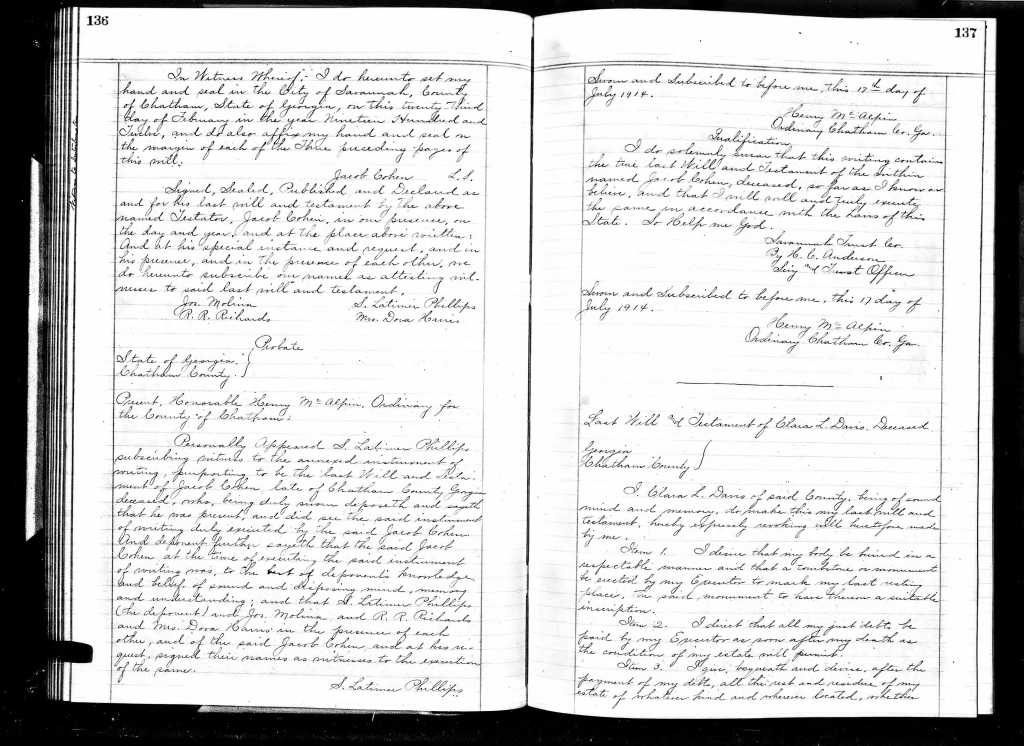 136
In Witness Whereof:- I do hereunto set my
hand and seal in the City of Savannah, County
of Chatham, State of Georgia, on this twenty third
day of February in the year Nineteen Hundred and
Twelve, and do also affix my hand and seal on
the margin of each of the Three preceding pages of
this will.
Jacob Cohen L.S.
Signed, Sealed, Published and Declared as
and for his last will and testament by the above
named Testator, Jacob Cohen, in our presence, on
the day and year, and at the place above written;
And at his special instance and request, and in
his presence, and in the presence of each other, we
do hereunto subscribe our names as attesting wit-
nesses to said last will and testament.
Jos. Molina S. Latimer Phillips
R. R. Richards Mrs. Dora Harris
Probate
State of Georgia
Chatham County.
Present, Honorable Henry McAlpin, Ordinary for
the County of Chatham:
Personally Appeared S. Latimer Phillips
subscribing witness to the annexed instrument of
writing, purporting to be the Last Will and Testa-
ment of Jacob Cohen late of Chatham County Georgia
deceased, who, being duly sworn deposeth and sayeth
that he was present, and did see the said instrument
of writing duly executed by the said Jacob Cohen
And deponent further sayeth that the said Jacob
Cohen at the time of executing the said instrument
of writing was, to the best of deponent's knowledge
and belief of sound and disposing mind, memory
and understanding; and that S. Latimer Phillips
(the deponent) and Jos. Molina and R. R. Richards
and Mrs. Dora Harris in the presence of each
other, and of the said Jacob Cohen, and at his re-
quest, signed their names as witnesses to the execution
of the same.
S. Latimer Phillips
137
Sworn and Subscribed to before me, this 17th day of
July 1914.
Henry McAlpin
Ordinary Chatham Co. Ga.
Qualification
I do solemnly swear that this writing contains
the true last Will and Testament of the within
named Jacob Cohen, deceased, so far as I know or
believe, and that I will well and truly execute
the same in accordance with the Laws of this
State. So Help me God.
Savannah Trust Co.
By H. C. Anderson
and Trust Officer
Sworn and Subscribed to before me, this 17 day of
July 1914.
Henry McAlpin
Ordinary Chatham Co. Ga.
Last Will and Testament of Clara L. Davis. Deceased
Georgia
Chatham County
I, Clara L. Davis of said County, being of sound
mind and memory, do make this my last will and
testament, hereby expressly revoking will heretofore made
by me.
Item 1. I desire that my body be buried in a
respectable manner and that a tombstone or monument
be erected by my Executor to mark my last resting
place, the said monument to have thereon a suitable
inscription.
Item 2. I direct that all my just debts be
paid by my Executor as soon after my death as
the condition of my estate will permit.
Item 3. I give, bequeath and devise, after the
payment of my debts, all the rest and residue of my
estate of whatever kind and wherever located, whether